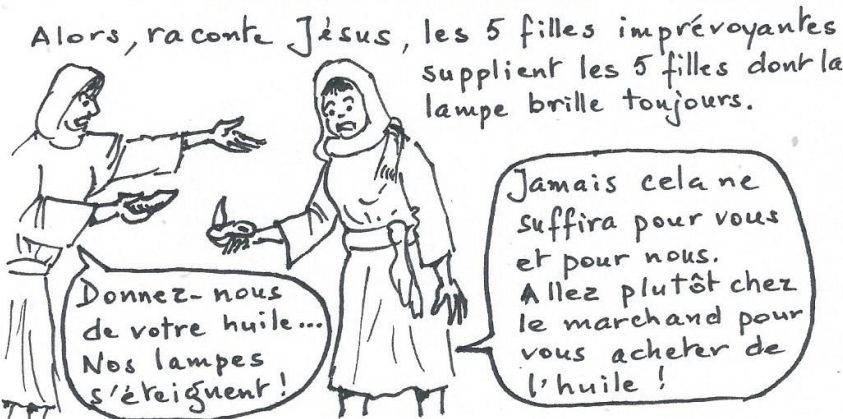 Alors, raconte Jésus, les 5 filles imprévoyantes
supplient les 5 filles dont la
lampe brille toujours.
Donnez-nous
de votre huile...
Nos lampes
s'éteignent !
Jamais cela ne
suffira pour vous
et pour nous.
Allez plutôt chez
le marchand pour
vous acheter de
l'huile !